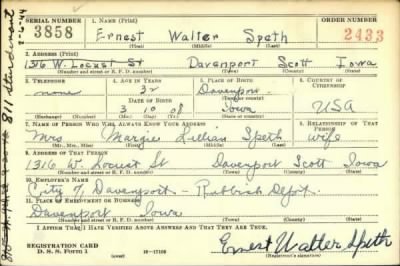 SERIAL NUMBER 1. NAME (Print) ORDER NUMBER
3858 Ernest Walter Speth 2433
(First) (Middle) (Last)
2. ADDRESS (Print)
1316 W. Locust St Davenport Scott Iowa
(Number and street or R. F. D. number) (Town) (County) (State)
3. TELEPHONE 4. AGE IN YEARS 5. PLACE OF BIRTH 6. COUNTRY OF CITIZENSHIP
none 32 Davenport
(Town or county)
DATE OF BIRTH
3 10 08 Iowa USA
(Exchange) (Number) (Mo.) (Day) (Yr.) (State or country)
7. NAME OF PERSON WHO WILL ALWAYS KNOW YOUR ADDRESS 8. RELATIONSHIP OF THAT PERSON
Mrs Margie Lillian Speth wife
(Mr., Mrs., Miss) (First) (Middle) (Last)
9. ADDRESS OF THAT PERSON
1316 W. Locust St Davenport Scott Iowa
(Number and street or R. F. D. number) (Town) (County) (State)
10. EMPLOYER'S NAME
City of Davenport - Rubbish Depot.
11. PLACE OF EMPLOYMENT OR BUSINESS
Davenport Iowa
(Number and street or R. F. D. number) (Town) (County) (State)
I AFFIRM THAT I HAVE VERIFIED ABOVE ANSWERS AND THAT THEY ARE TRUE.
REGISTRATION CARD
D. S. S. Form 1 Ernest Walter Speth
(Registrant's signature)